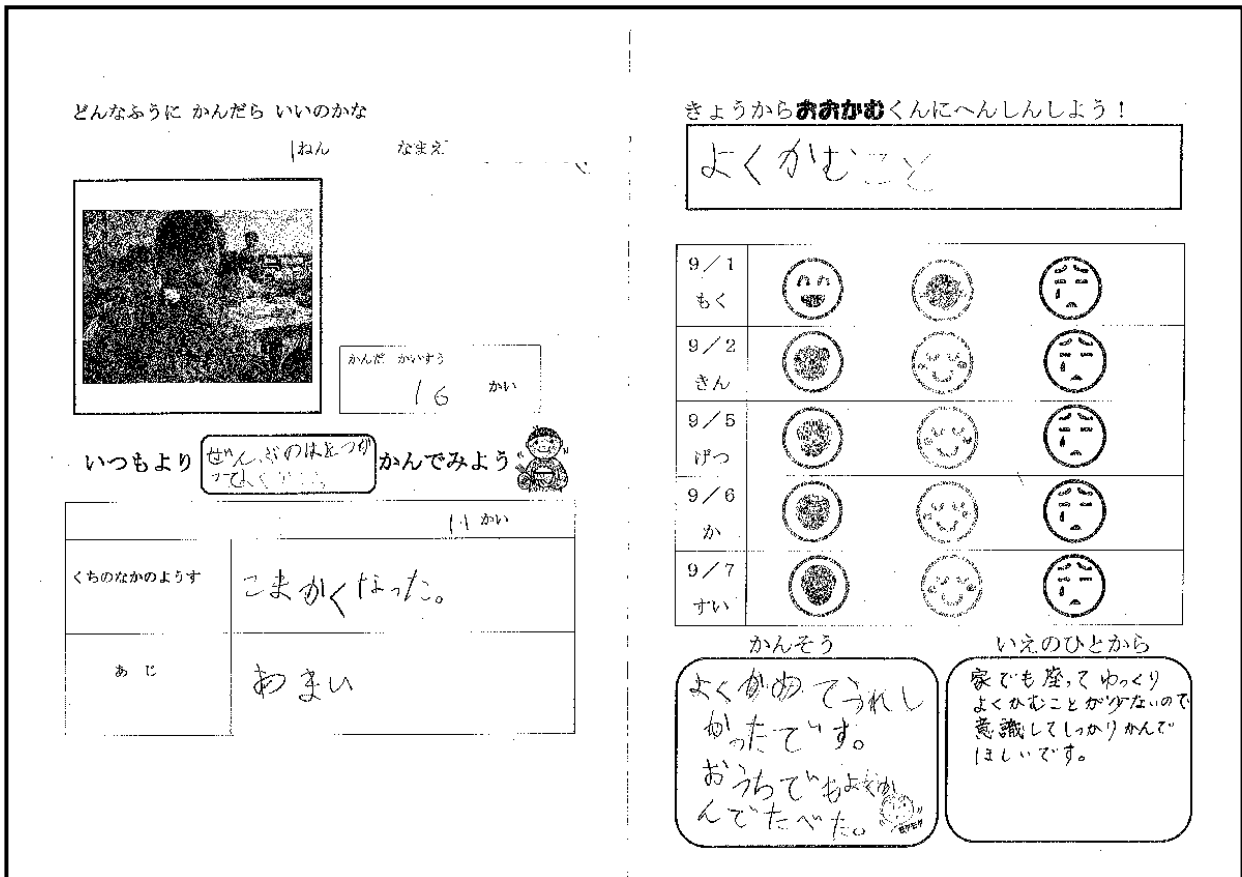 どんなふうに かんだら いいのかな
1ねん なまえ
かんだ かいすう
16 かい
いつもより ぜんぶのはをつか かんでみよう
ってよく
かい
くちのなかのようす こまかくなった。
あじ あまい
きょうからおおかむくんにへんしんしよう！
よくかむこと
9／1
もく
9／2
きん
9／5
げつ
9／6
か
9／7
すい
かんそう
よくかめてうれし
かったです。
おうちでもよくか
んでたべた。
モグモグ
いえのひとから
家でも座ってゆっくり
よくかむことが少ないので
意識してしっかりかんで
ほしいです。